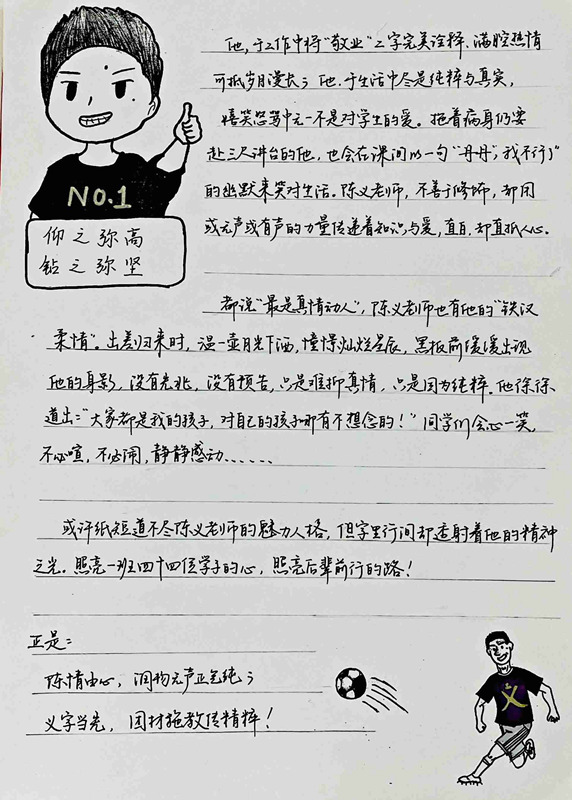 他，于工作中将“敬业”二字完美诠释，满腔热情
可抵岁月漫长；他，于生活中尽是纯粹与真实，
嬉笑怒骂中无一不是对学生的爱。拖着病身仍要
赴三尺讲台的他，也会在课间以一句“丹丹，我不行了”
的幽默来笑对生活。陈义老师，不善于修饰，却用
或无声或有声的力量传递着知识与爱，直白，却直抵人心。
NO.1
仰之弥高
钻之弥坚
都说“最是真情动人”，陈义老师也有他的“铁汉
柔情”。出差归来时，温一壶月光下酒，憧憬灿烂星辰，黑板前缓缓出现
他的身影，没有先兆，没有预告，只是难抑真情，只是因为纯粹。他徐徐
道出：“大家都是我的孩子，对自己的孩子哪有不想念的！”同学们会心一笑，
不必喧，不必闹，静静感动......
或许纸短道不尽陈义老师的魅力人格，但字里行间却透射着他的精神
之光。照亮一班四十四位学子的心，照亮后辈前行的路！
正是：
陈情由心，润物无声正气纯；
义字当先，因材施教传精粹！
义